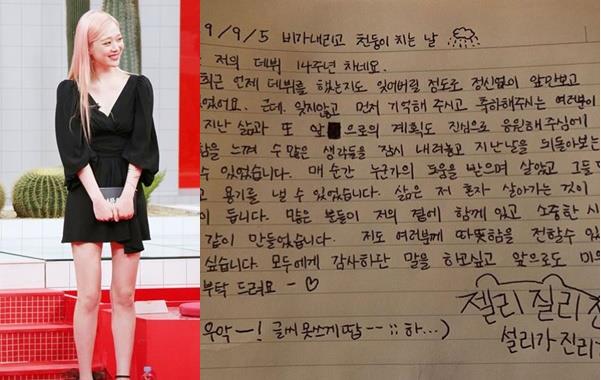 9/9/5 비가내리고 천둥이 치는 날
저의 데뷔 14주년 차네요.
최근 언제 데뷔를 했는지도 잊어버릴 정도로 정신없이 앞만보고
있었어요. 근데, 잊지않고 먼저 기억해 주시고 축하해주시는 여러분이
지난 삶과 또 앞으로의 계획도 진심으로 응원해 주심에
함을 느껴 수 많은 생각들을 잠시 내려놓고 지난날을 되돌아보는
수 있었습니다. 매 순간 누군가의 도움을 받으며 살았고 그들
고 용기를 낼 수 있었습니다. 삶은 저 혼자 살아가는 것이
이 듭니다. 많은 분들이 저의 곁에 함께 있고 소중한 시
같이 만들었습니다. 저도 여러분께 따뜻함을 전할수 있
싶습니다. 모두에게 감사하단 말을 하고싶고 앞으로도 미
부탁 드려요 - ♡
우악 -! 글씨 못쓰게땁 -- ;; 하...)
젤리 질리
설리가 진리